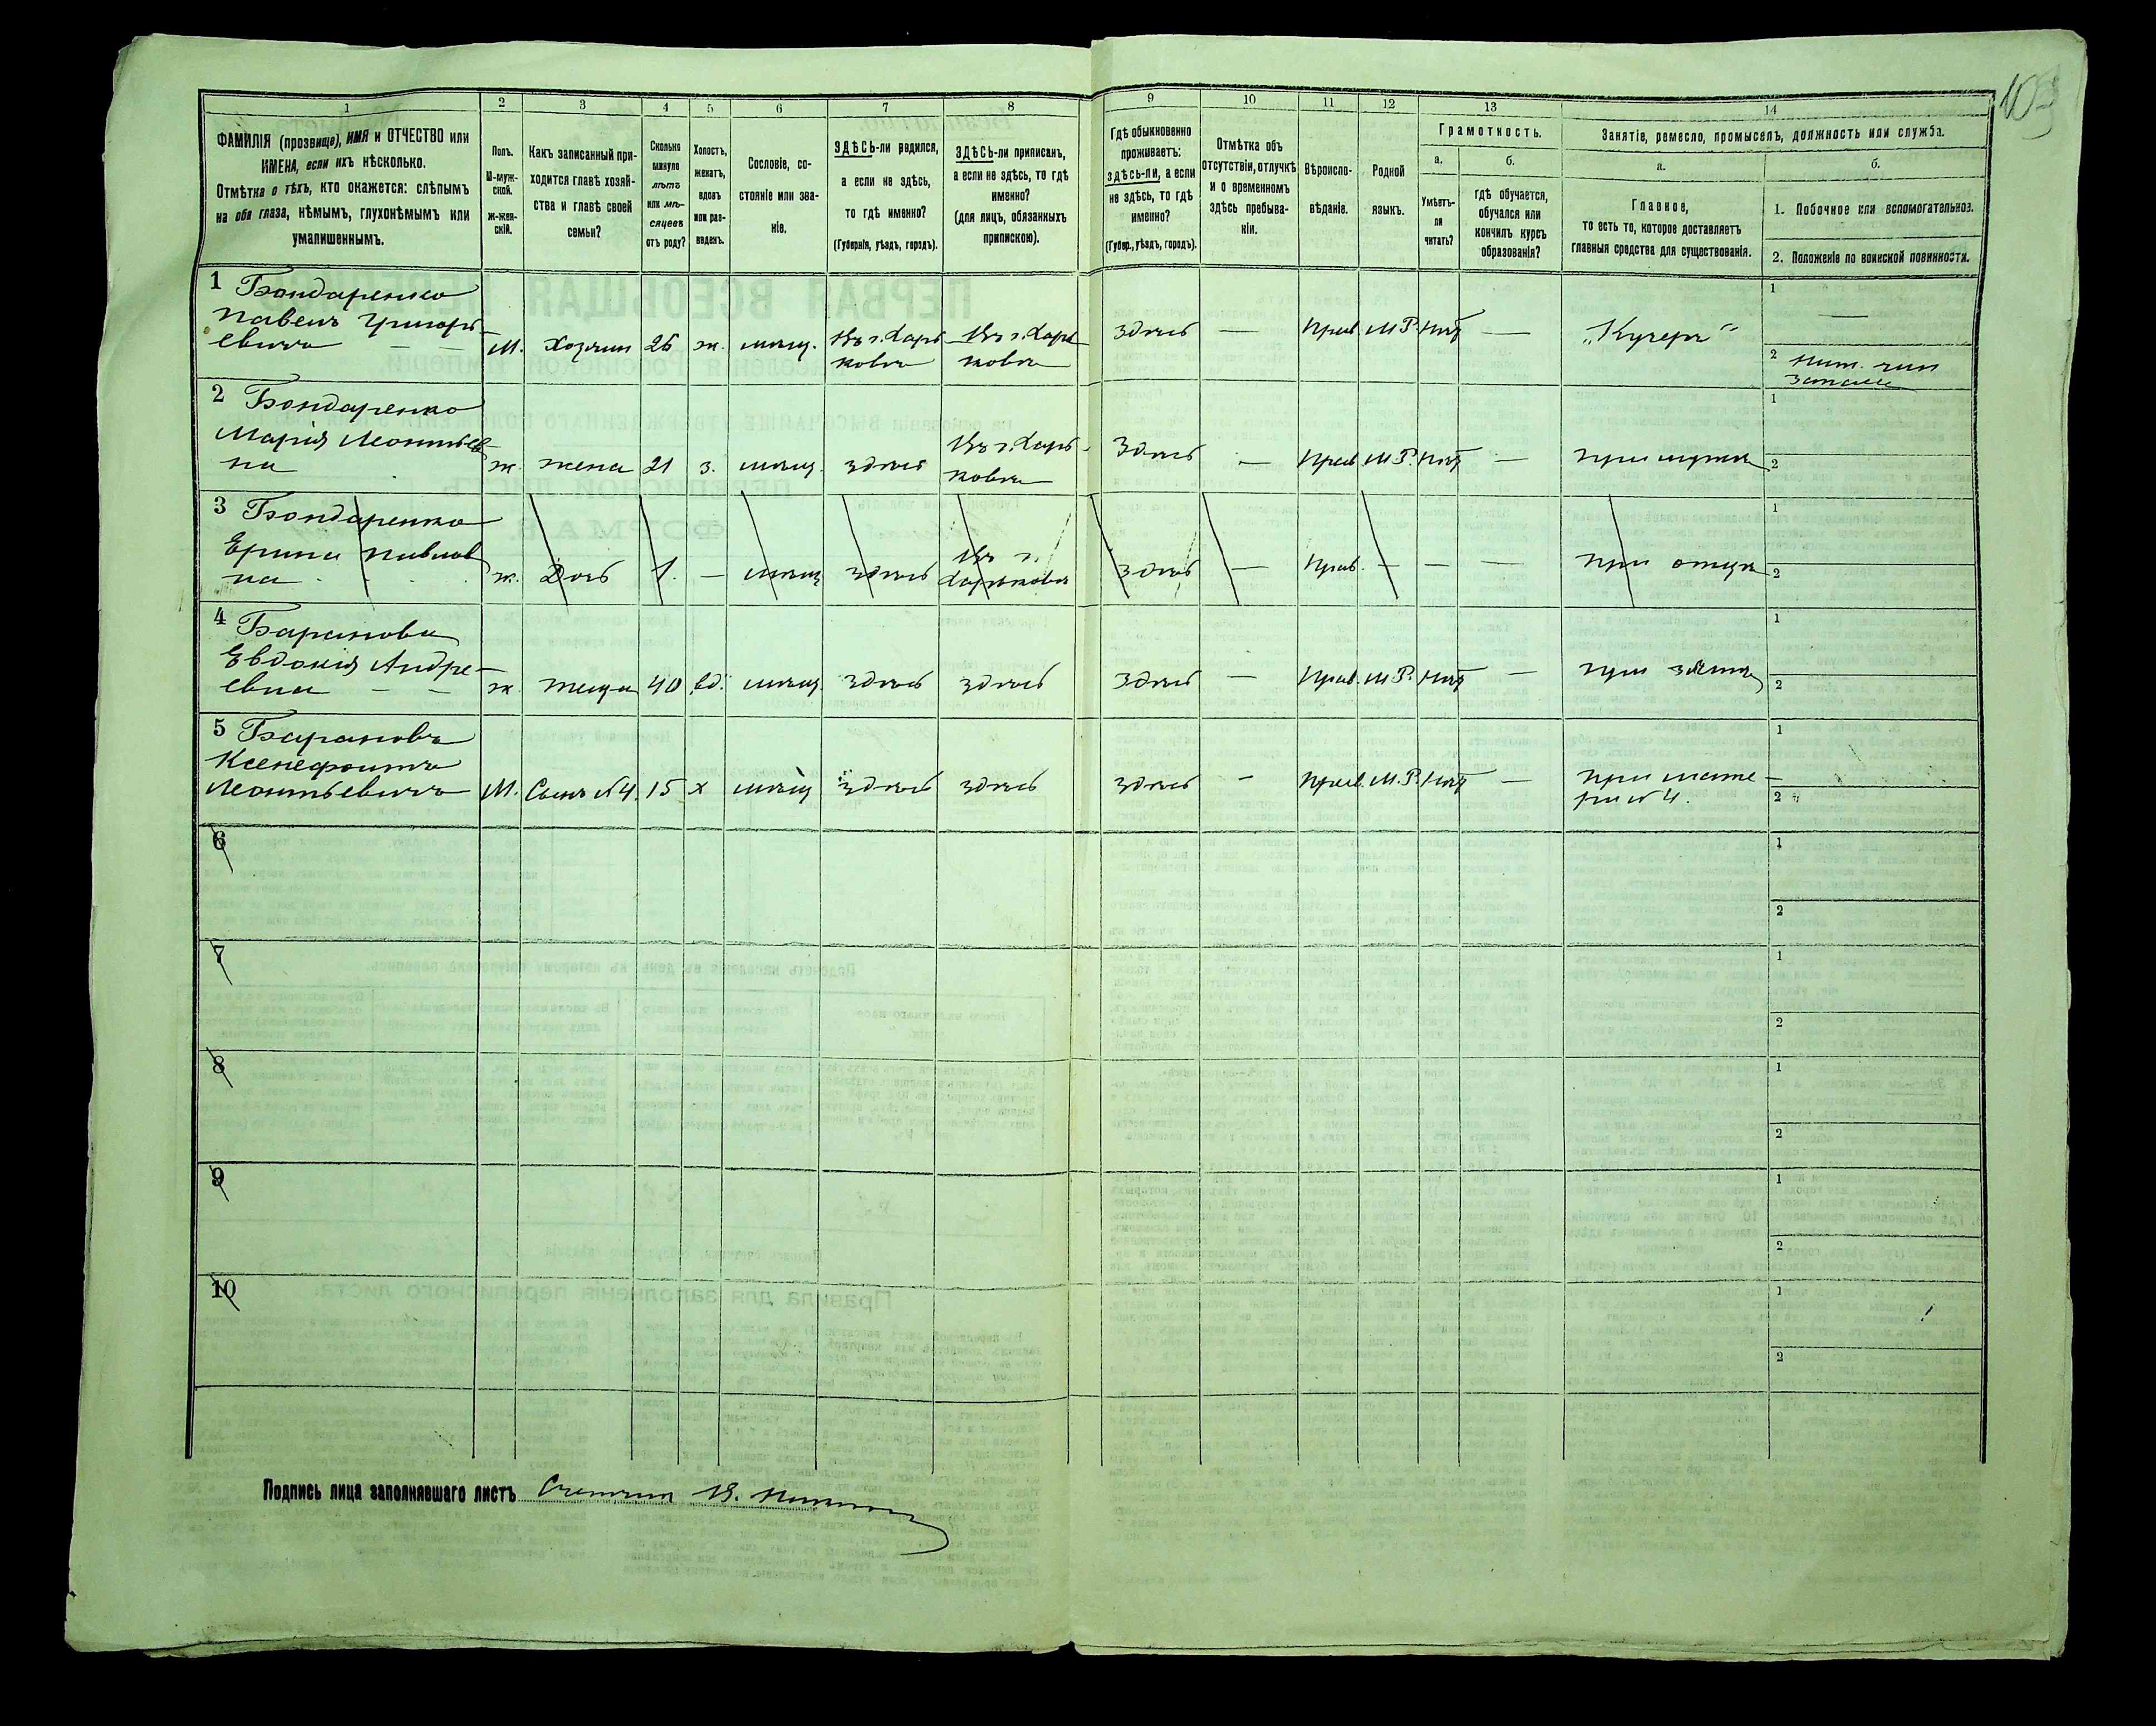 103
1 2 3 4 5 6 7 8 9 10 11 12 13 14
ФАМИЛІЯ (прозвище), ИМЯ и ОТЧЕСТВО или
ИМЕНА, если ихъ нѣсколько.
Отмѣтка о тѣхъ, кто окажется: слѣпымъ
на оба глаза, нѣмымъ, глухонѣмымъ или
умалишеннымъ.
Полъ.
М-муж-
ской.
ж-жен-
скій.
Какъ записанный при-
ходится главѣ хозяй-
ства и главѣ своей
семьи?
Сколько
минуло
лѣтъ
или мѣ-
сяцевъ
отъ роду?
Холостъ,
женатъ,
вдовъ
или раз-
веденъ.
Сословіе, со-
стояніе или зва-
ніе.
ЗДѢСЬ-ли родился,
а если не здѣсь,
то гдѣ именно?
(Губернія, уѣздъ, городъ).
ЗДѢСЬ-ли приписанъ,
а если не здѣсь, то гдѣ
именно?
(для лицъ, обязанныхъ
припискою).
Гдѣ обыкновенно
проживаетъ:
здѣсь-ли, а если
не здѣсь, то гдѣ
именно?
(Губер., уѣздъ, городъ).
Отмѣтка объ
отсутствіи, отлучкѣ
и о временномъ
здѣсь пребыва-
ніи.
Вѣроиспо-
вѣданіе.
Родной
языкъ.
Грамотность.
а.
Умѣетъ-
ли
читать?
б.
гдѣ обучается,
обучался или
кончилъ курсъ
образованія?
Занятіе, ремесло, промыселъ, должность или служба.
а.
Главное,
то есть то, которое доставляетъ
главныя средства для существованія.
б.
1. Побочное или вспомогательное.
2. Положеніе по воинской повинности.
1 Бондаренко
Павелъ Григорь-
евичъ — —
М. Хозяин 26 ж. мѣщ. Въ г. Харь
ковѣ
Въ г. Харь
ковѣ
здѣсь — Прав. М.Р. Нѣт — „Кучеръ“
1 —
2
запаса
2 Бондаренко
Марія Леонтьев-
на
ж. жена 21 з. мѣщ. здѣсь Въ г. Харь-
ковѣ
Здѣсь — Прав. М.Р. Нѣт — при мужѣ
1
2
3 Бондаренко
Ерина Павлов
на
ж. Дочь 1. — мѣщ здѣсь Въ г.
Харьковѣ
здѣсь — Прав. — — — при отцѣ
1
2
4 Баранова
Евдокія Андре-
евна — —
ж. теща 40 вд. мѣщ. здѣсь здѣсь здѣсь — Прав. М.Р. Нѣт — при зятѣ
1
2
5 Барановъ
Ксенефонтъ
Леонтьевичъ М. Сынъ №4. 15 х мѣщ здѣсь здѣсь здѣсь — Прав. М.Р. Нѣт — при мате-
ри №4.
1
2
6
1
2
7
1
2
8
1
2
9
1
2
10
1
2
Подпись лица заполнявшаго листъ Счетчик